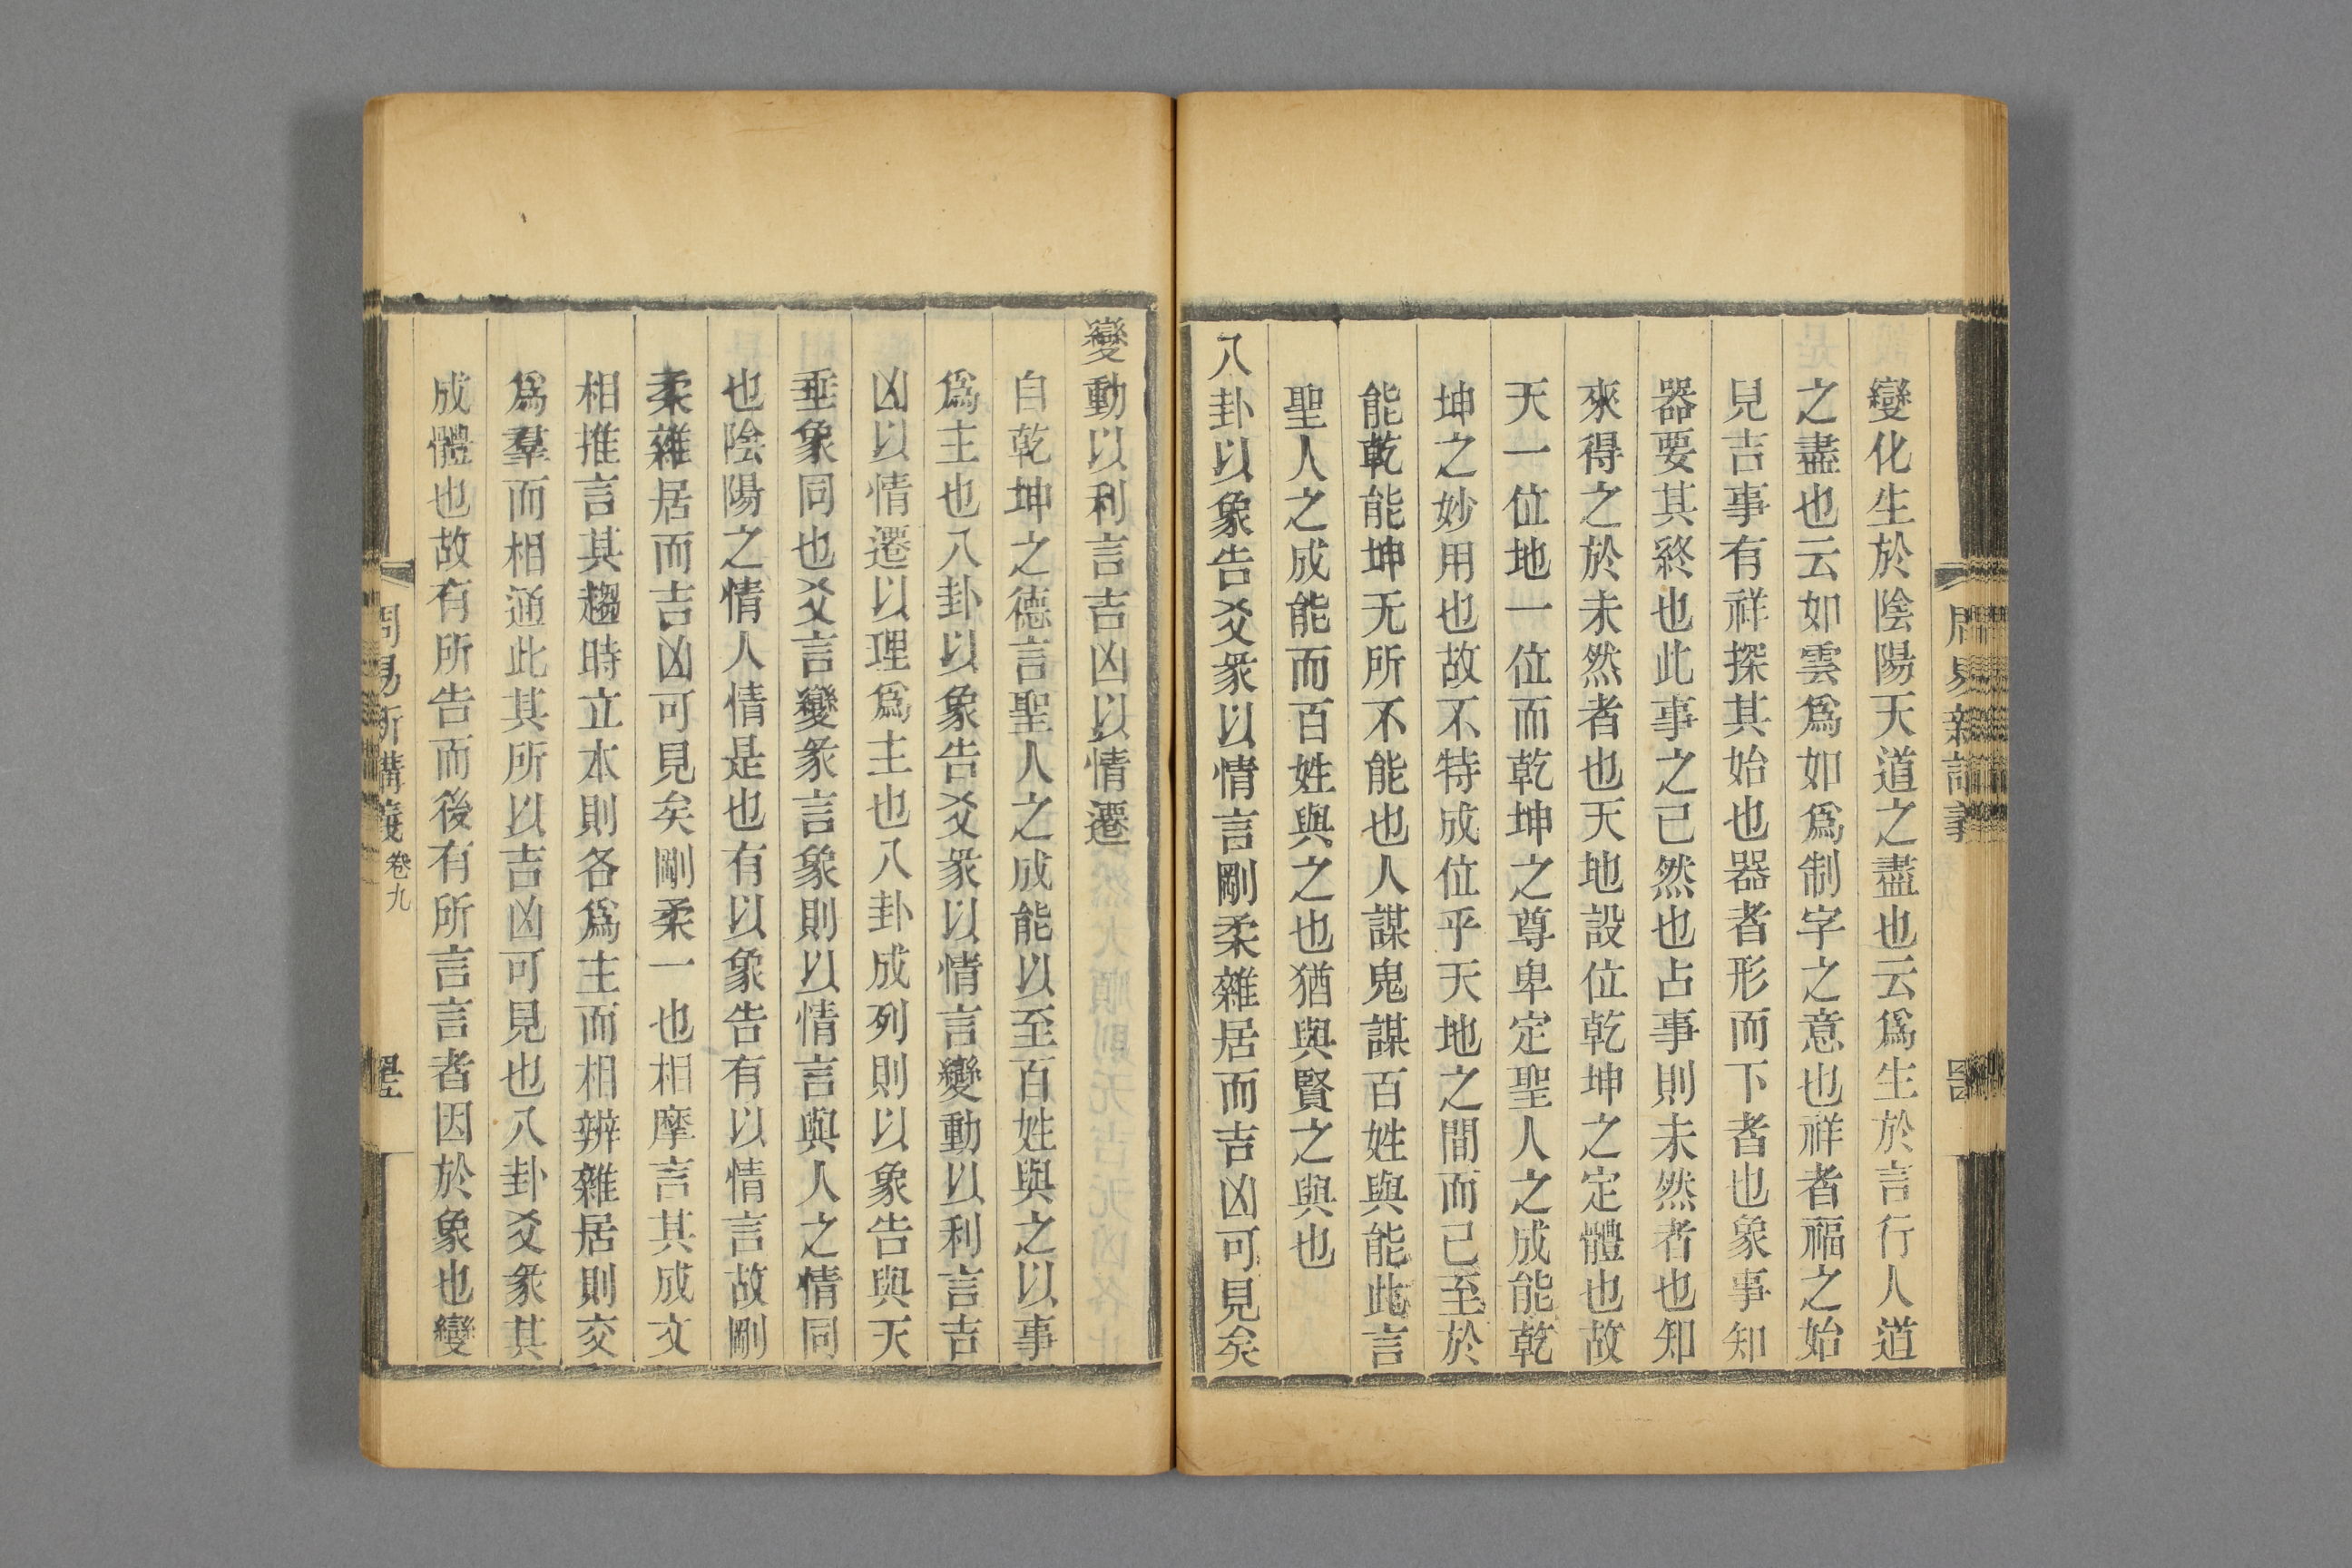 變化生於陰陽天道之盡也云爲生於言行人道
之盡也云如雲爲如爲制字之意也祥者福之始
見吉事有祥探其始也器者形而下者也象事知
器要其終也此事之已然也占事則未然者也知
來得之於未然者也天地設位乾坤之定體也故
天一位地一位而乾坤之尊卑定聖人之成能乾
坤之妙用也故不特成位乎天地之間而已至於
能乾能坤无所不能也人謀鬼謀百姓與能此言
聖人之成能而百姓與之也猶與賢之與也
八卦以象告爻彖以情言剛柔雜居而吉凶可見矣
變動以利言吉凶以情遷
自乾坤之德言聖人之成能以至百姓與之以事
爲主也八卦以象告爻彖以情言變動以利言吉
凶以情遷以理爲主也八卦成列則以象告與天
垂象同也爻言變彖言象則以情言與人之情同
也陰陽之情人情是也有以象告有以情言故剛
柔雜居而吉凶可見矣剛柔一也相摩言其成文
相推言其趨時立本則各爲主而相辨雜居則交
爲羣而相通此其所以吉凶可見也八卦爻彖其
成體也故有所告而後有所言言者因於象也變
周易新講義 卷九